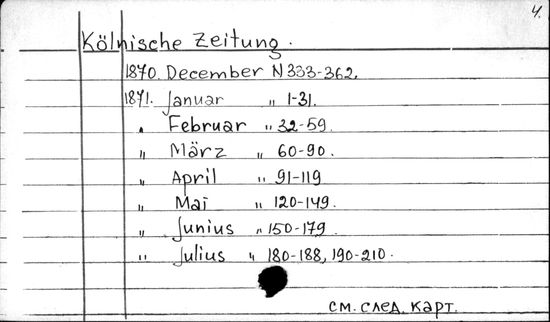 4.
Kölnische Zeitung.
1870. December N 333-362.
1871. Januar " 1-31.
" Februar " 32-59.
" März " 60-90.
" April " 91-119
" Mai " 120-149.
" Junius " 150-179
" Julius " 180-188, 190-210.
см. след. карт.